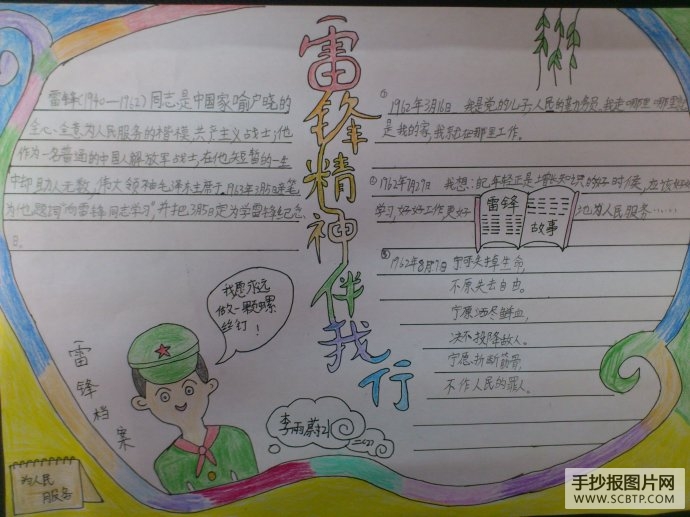 雷锋精神伴我行
雷锋(1940—1962)同志是中国家喻户晓的
全心全意为人民服务的楷模,共产主义战士;他
作为一名普通的中国人解放军战士,在他短暂的一生
中却助人无数,伟大领袖毛泽东主席于1963年3月5日亲笔
为他题词"向雷锋同志学习"并把3月5日定为学雷锋纪念
日。
我愿永远
做一颗螺
丝钉!
雷锋档案
为人民
服务
① 1962年3月16日 我是党的儿子,人民的勤务员,我走哪里哪里
是我的家,我就在那里工作。
② 1962年7月29日 我想:现年轻正是增长知识的好时侯,应该好好
学习,好好工作更好
地为人民服务……
雷锋
故事
③ 1962年8月7日 宁可失掉生命,
不原失去自由。
宁原洒尽鲜血,
决不投降敌人。
宁愿折断筋骨,
不作人民的罪人。
李雨蔚
手抄报图片网
WWW.SCBTP.COM